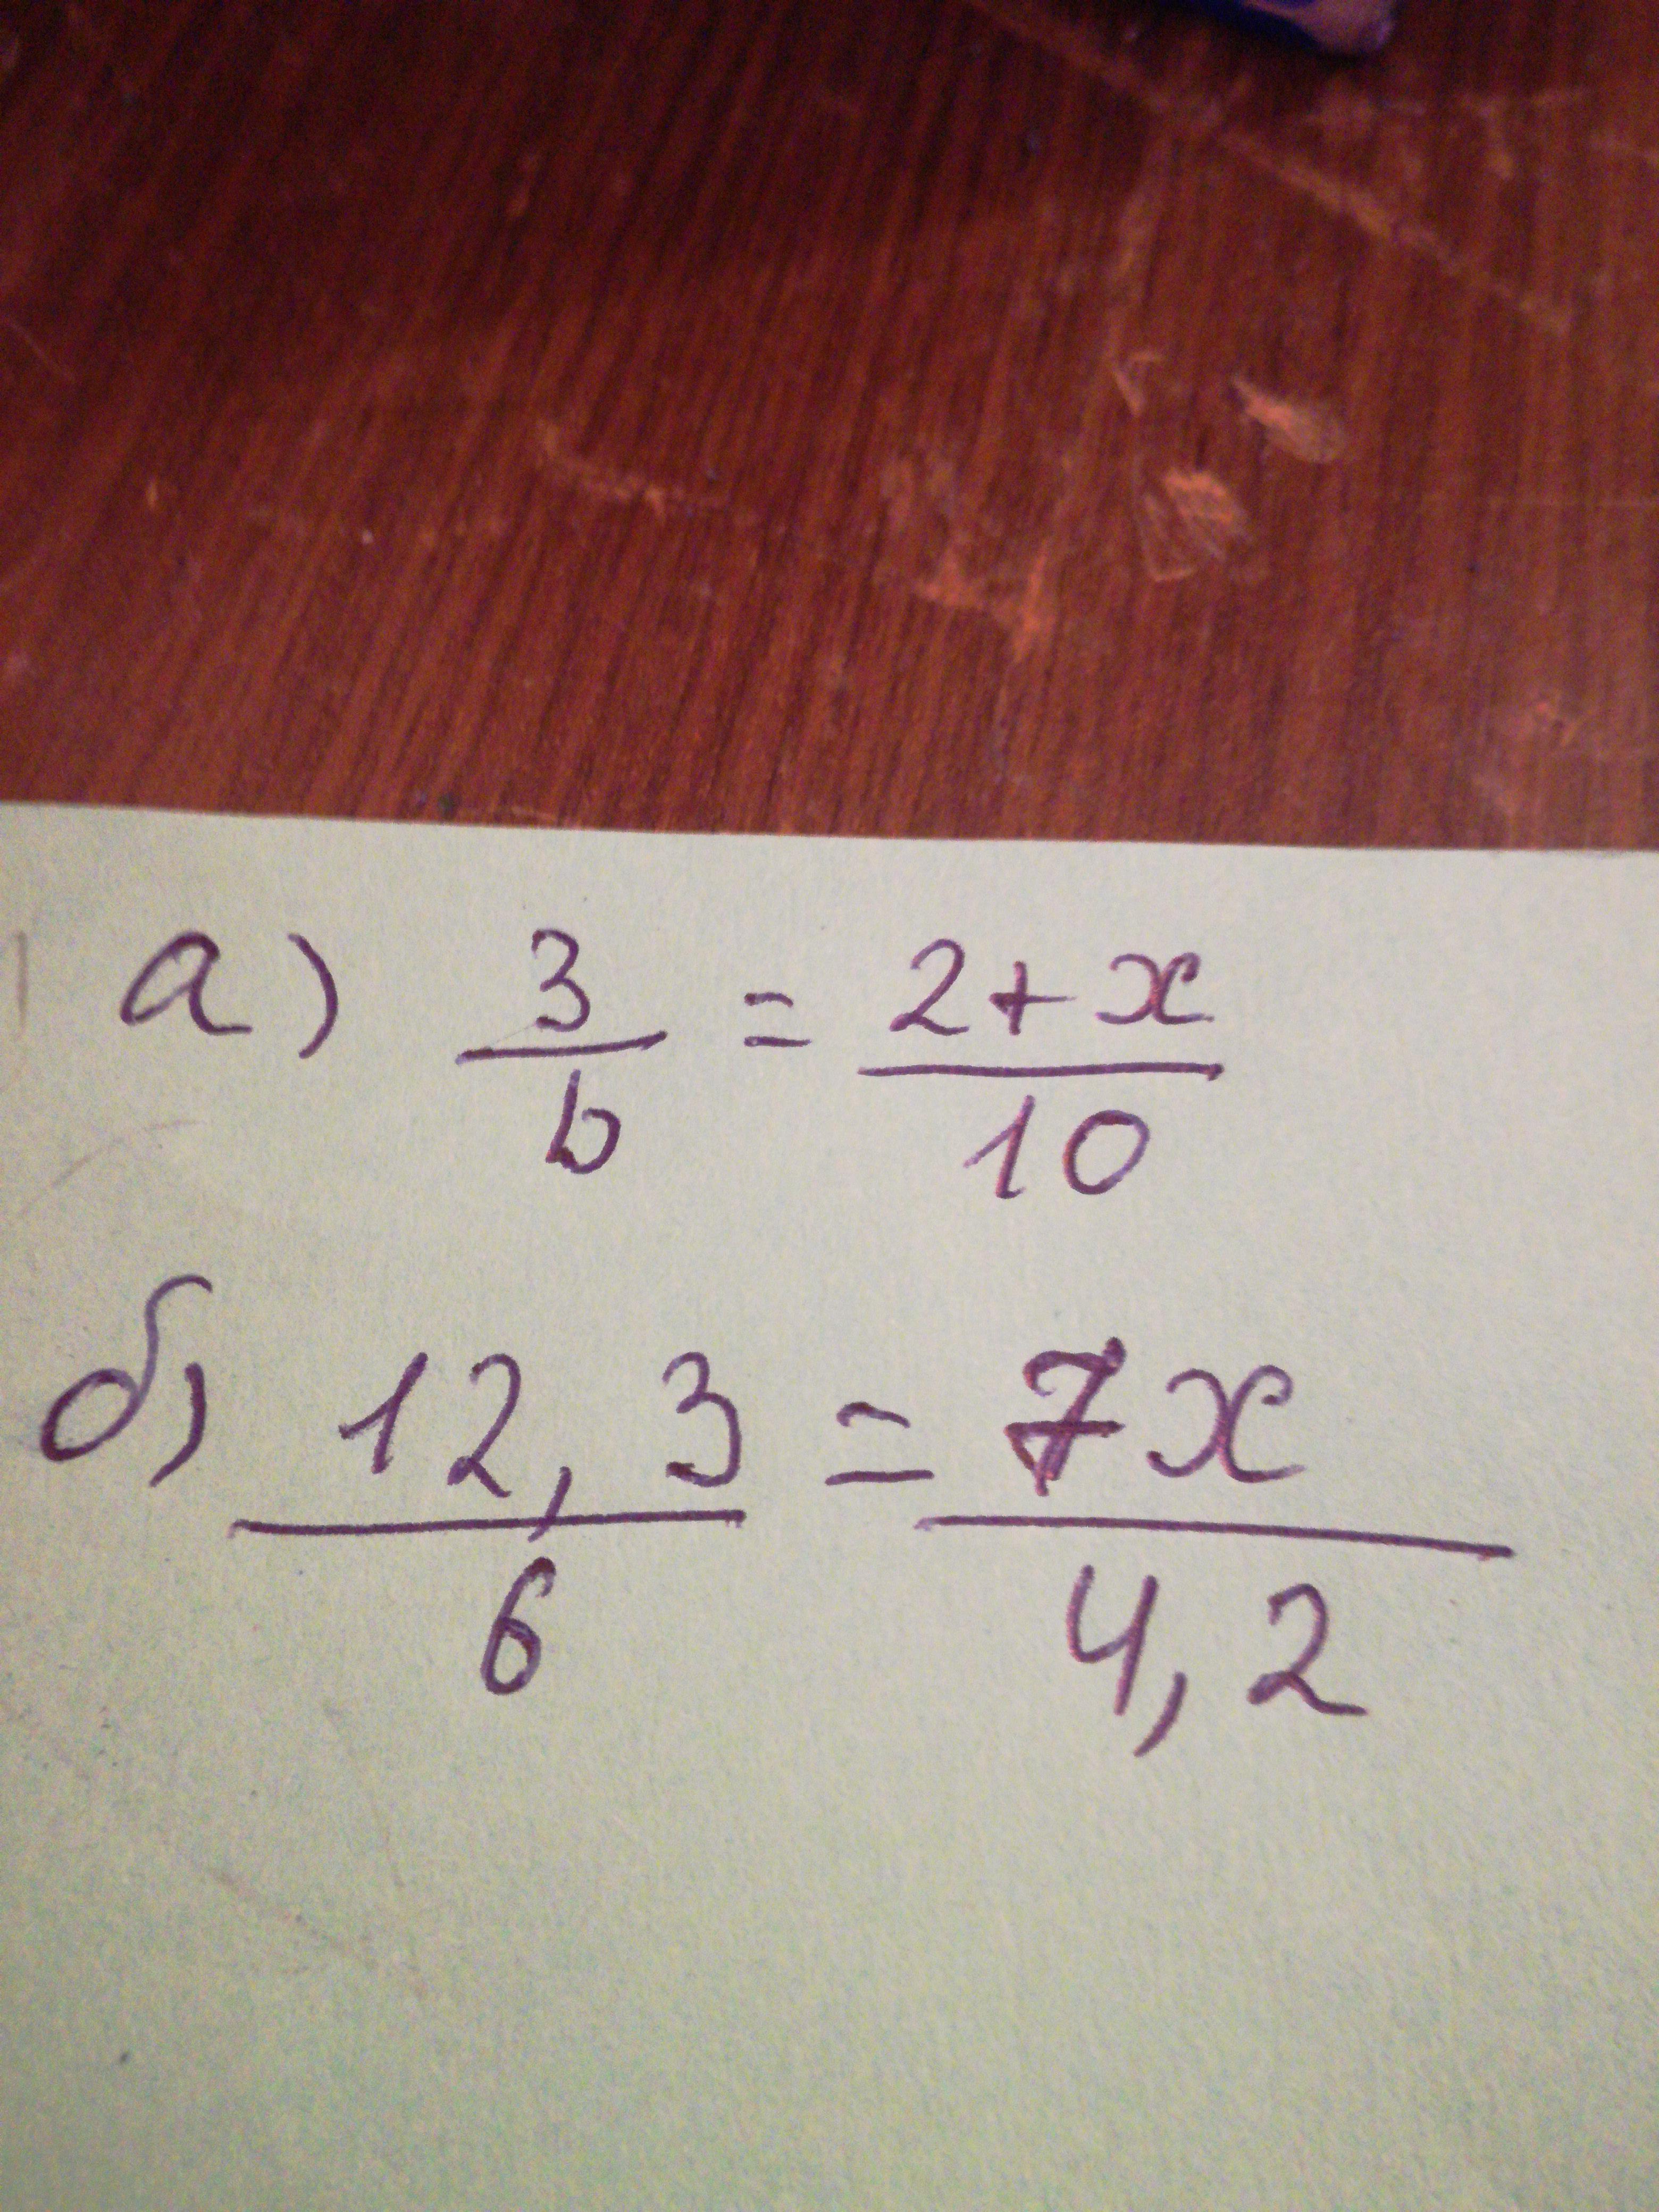 а) 3/b = 2+x/10
б) 12,3/6 = 7x/4,2